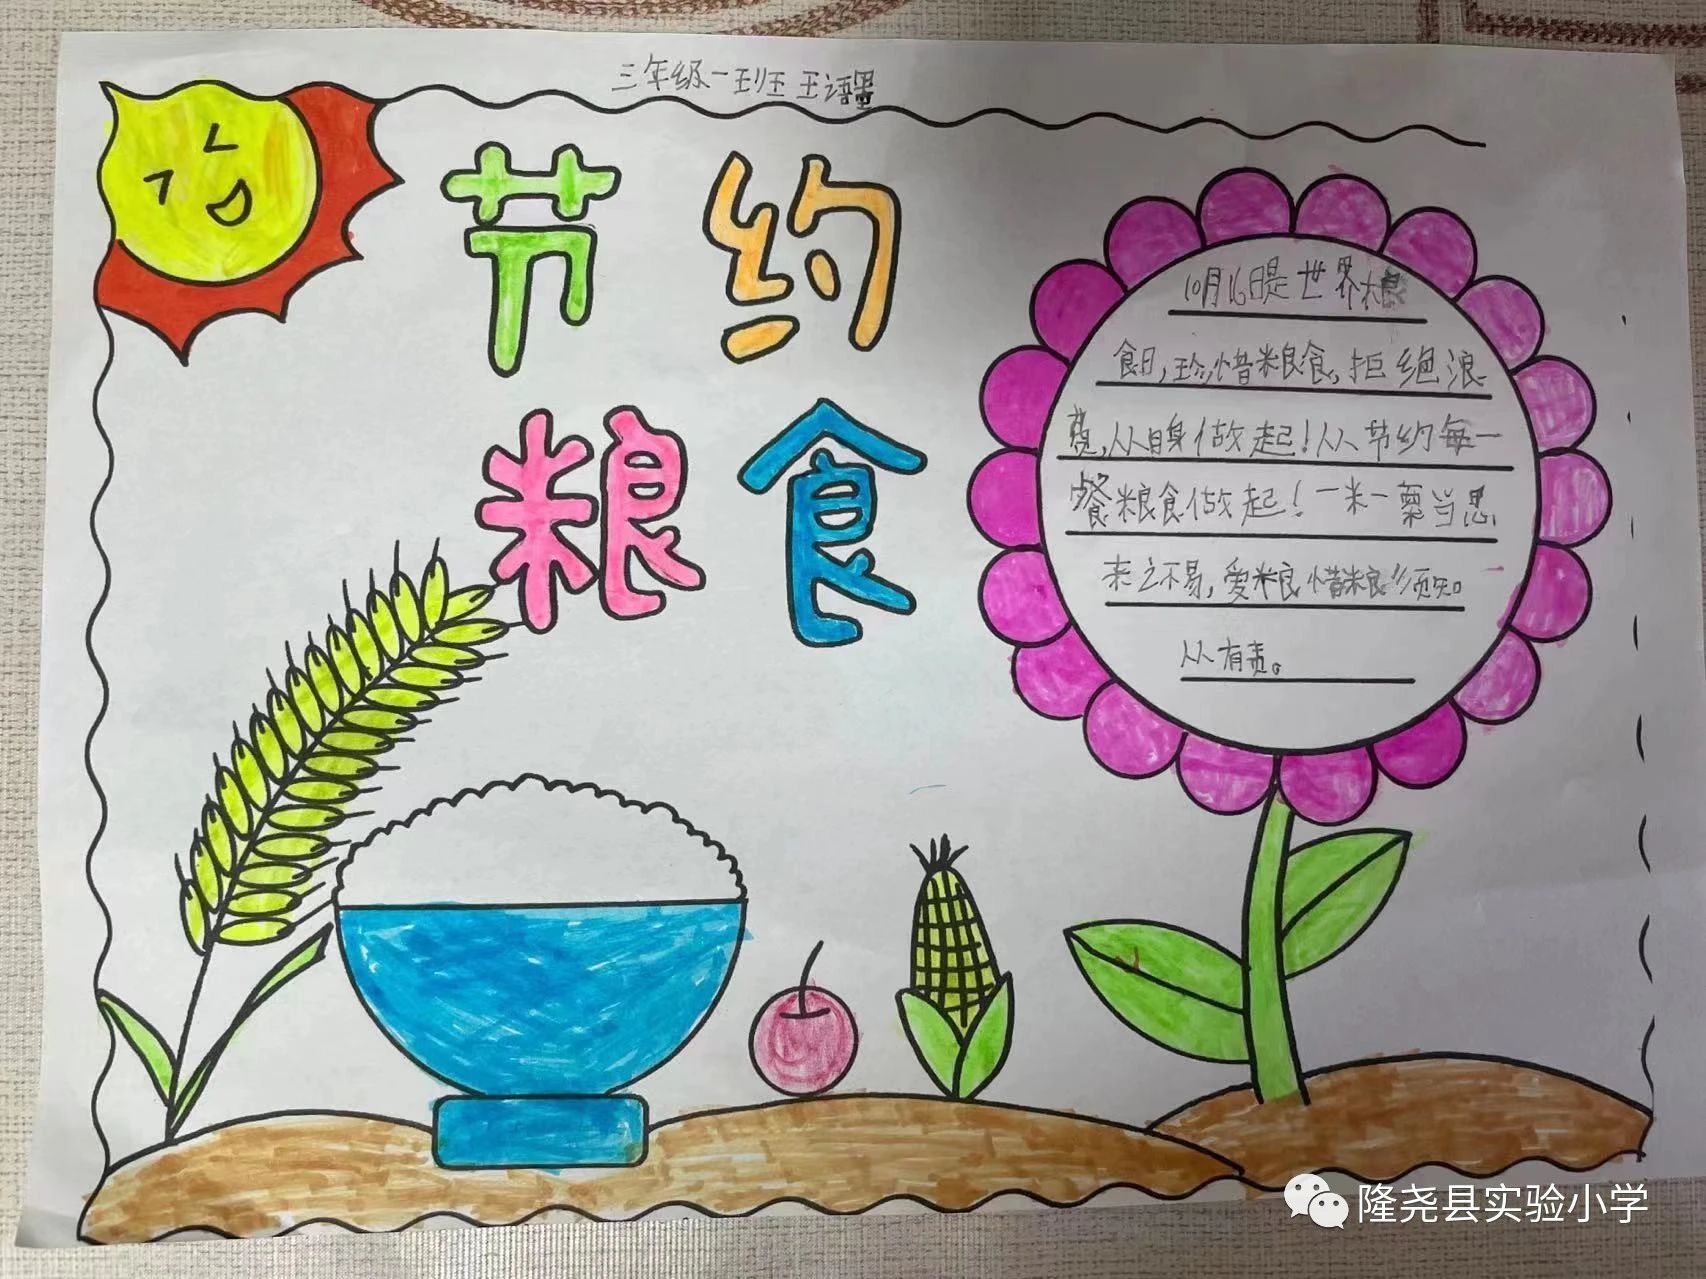 三年级一班 王语墨
节约
粮食
10月16日是世界粮
食日,珍惜粮食,拒绝浪
费,从自身做起!从节约每一
餐粮食做起!一米一粟当思
来之不易,爱粮惜粮须知
人人有责。
隆尧县实验小学